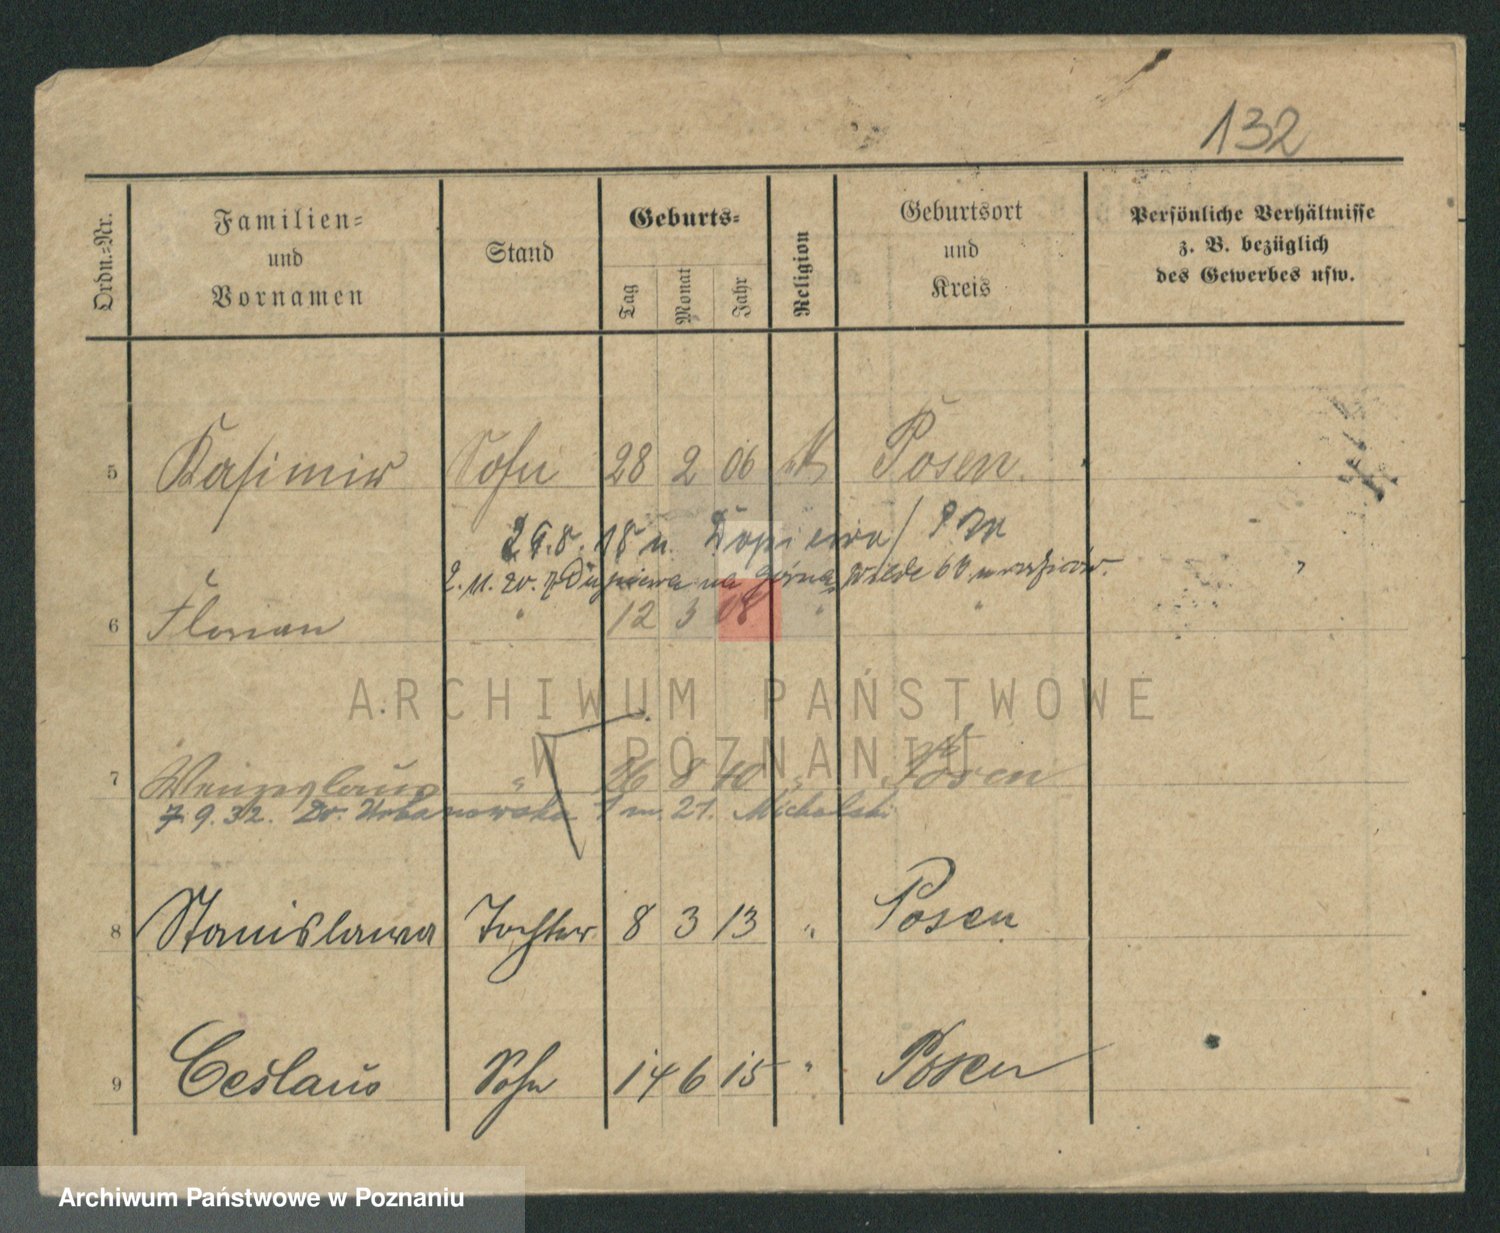 132
Ordn.-Nr.
Familien-
und
Vornamen
Stand
Geburts-
Tag
Monat
Jahr
Religion
Geburtsort
und
Kreis
Persönliche Verhältnisse
z. B. bezüglich
des Gewerbes usw.
5 Kasimir Sohn 28 2 06 Posen
29.8.18 n. Dopiewa
2.11.20. z Dupiewa na Górna Wilde 60
6 Florian " 12 3 08 " "
ARCHIWUM PAŃSTWOWE
W POZNANIU
7 Wenzeslaus " 26 8 10 " Posen
7.9.32. Dr. Urbanowska 1 m 21. Michalski
8 Stanislawa Tochter 8 3 13 " Posen
9 Ceslaus Sohn 14 6 15 " Posen
Archiwum Państwowe w Poznaniu